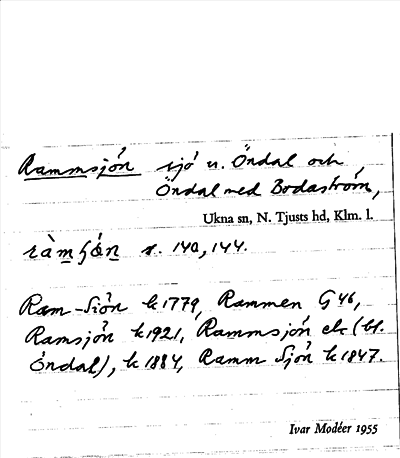 Rammsjön sjö n. Öndal och
Öndal med Bodaström,
Ukna sn, N. Tjusts hd, Klm. l.
s. 140, 144.
Ram-Siön k 1779, Rammen G 46,
Ramsjön k 1921, Rammsjön ek (bl.
Öndal), k 1884, Ramm Sjön k 1847.
Ivar Modéer 1955